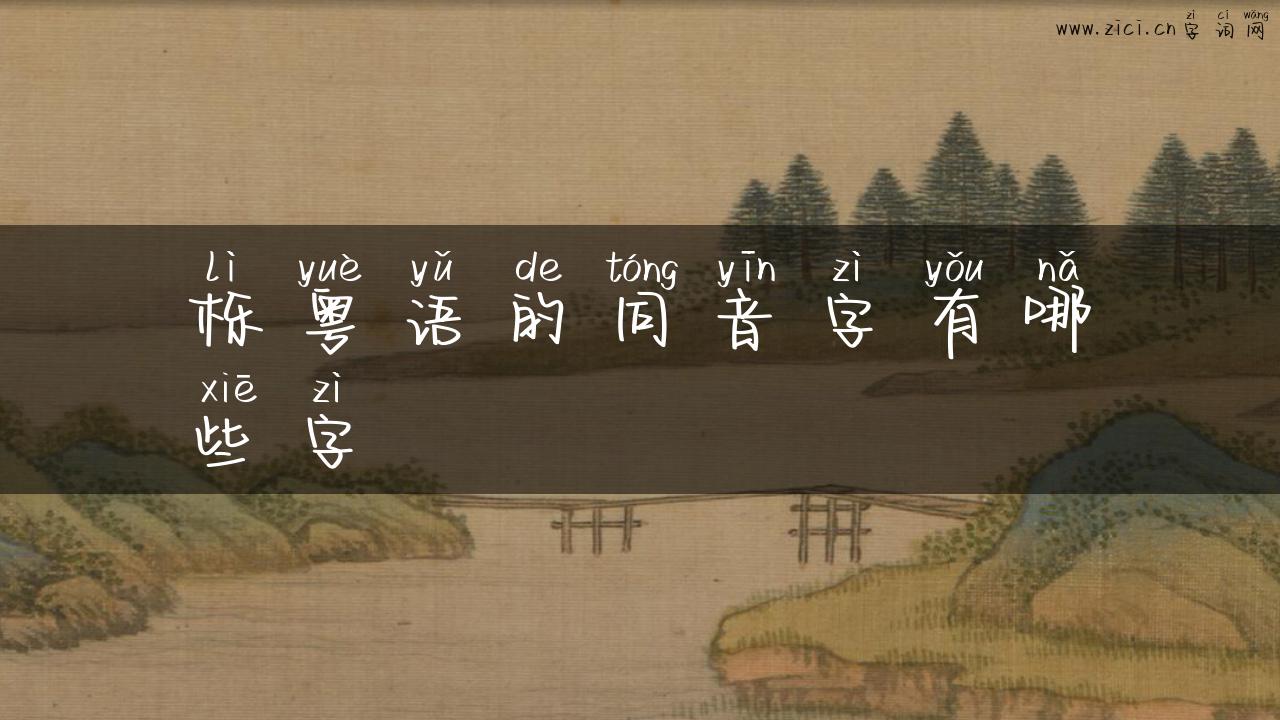 zì cí wǎng
www.zici.cn字词网
lì yuè yǔ de tóng yīn zì yǒu nǎ
栎粤语的同音字有哪
xiē zì
些字